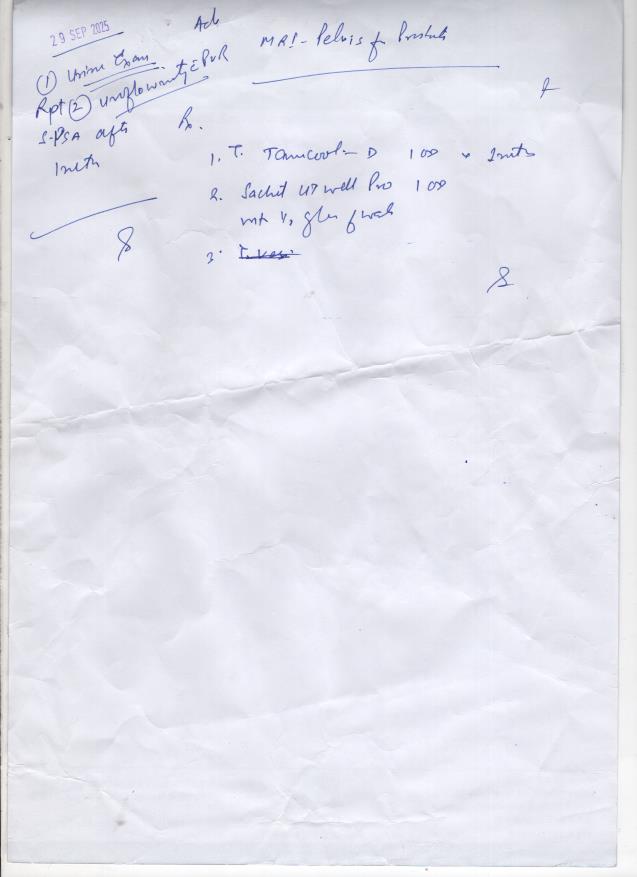 29 SEP 2025
Adv
MRI - Pelvis for Prostate
① Urine Exam
② Uroflowmetry c̄ PVR
Rpt
S-PSA after
1 mth
Rx.
1. T. Tamcool D 1 OD x 1 mth
2. Sachet UT well Pro 1 OD
glass of water
3.